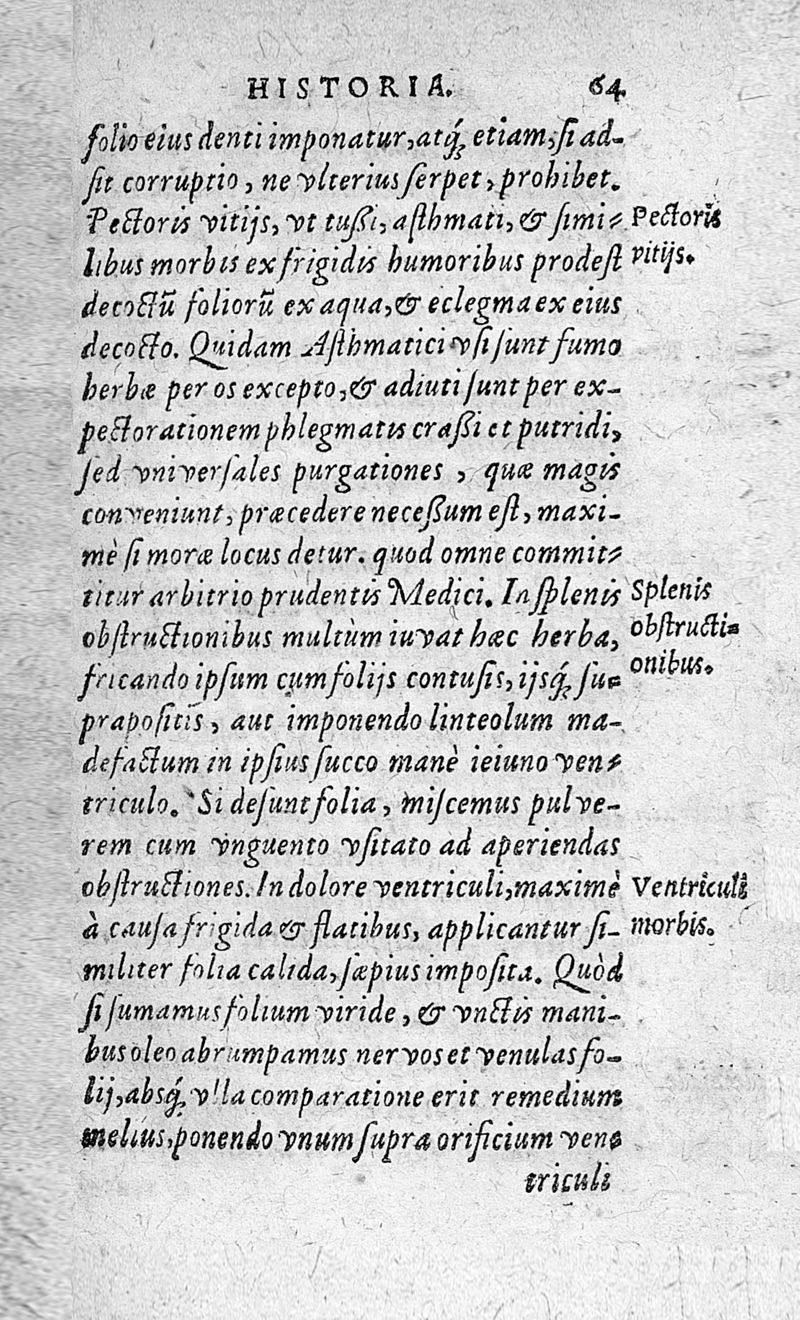 HISTORIA. 64.
folio eius denti imponatur, atq́ꝫ etiam, ſi ad-
ſit corruptio, ne vlterius ſerpet, prohibet.
Pectoris vitijs, vt tußi, aſthmati, & ſimi-
Pectoris
libus morbis ex frigidis humoribus prodeſt
vitijs.
decoctū foliorū ex aqua, & eclegma ex eius
decocto. Quidam Aſthmatici vſi ſunt fumo
herbæ per os excepto, & adiuti ſunt per ex-
pectorationem phlegmatis craßi et putridi,
ſed vniverſales purgationes, quæ magis
conveniunt, præcedere neceßum eſt, maxi-
mè ſi moræ locus detur. quod omne commit-
titur arbitrio prudentis Medici. In ſplenis
Splenis
obſtructionibus multùm iuvat hæc herba,
obſtructi-
fricando ipſum cum folijs contuſis, ijsq́ꝫ ſu-
onibus.
prapoſitis, aut imponendo linteolum ma-
defactum in ipſius ſucco manè ieiuno ven-
triculo. Si deſunt folia, miſcemus pulve-
rem cum vnguento vſitato ad aperiendas
obſtructiones. In dolore ventriculi, maximè
Ventriculi
à cauſa frigida & flatibus, applicantur ſi-
morbis.
militer folia calida, ſæpius impoſita. Quòd
ſi ſumamus folium viride, & vnctis mani-
bus oleo abrumpamus nervos et venulas fo-
lij, absq́ꝫ vlla comparatione erit remedium
melius, ponendo vnum ſupra orificium ven-
triculi